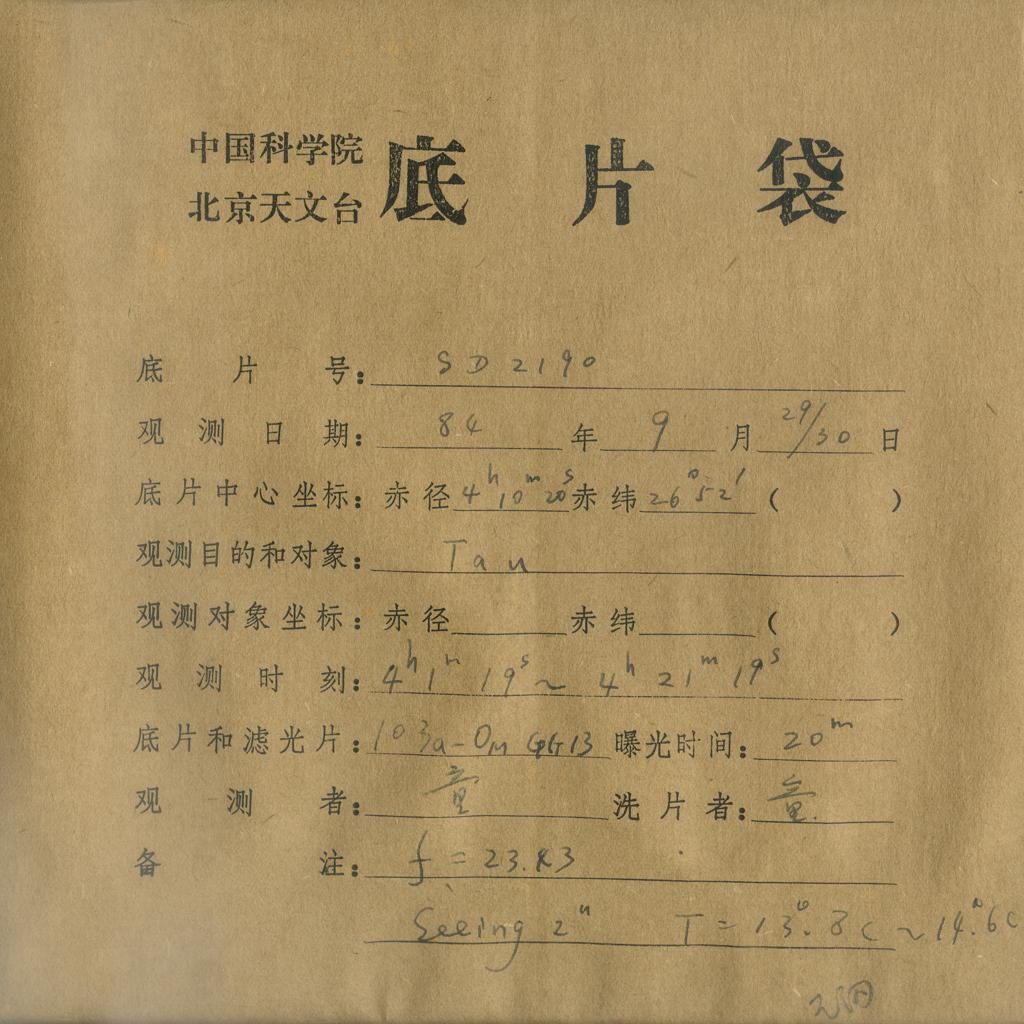 中国科学院
北京天文台 底片袋
底片号: SD2190
观测日期: 84年9月29/30日
底片中心坐标: 赤径4h10m20s赤纬26°52′( )
观测目的和对象: Tau
观测对象坐标: 赤径 赤纬 ( )
观测时刻: 4h1m19s~4h21m19s
底片和滤光片: 103a-O GG13 曝光时间: 20m
观测者: 童 洗片者: 童
备注: f=23.83
Seeing 2" T=13°.8C~14°.6C